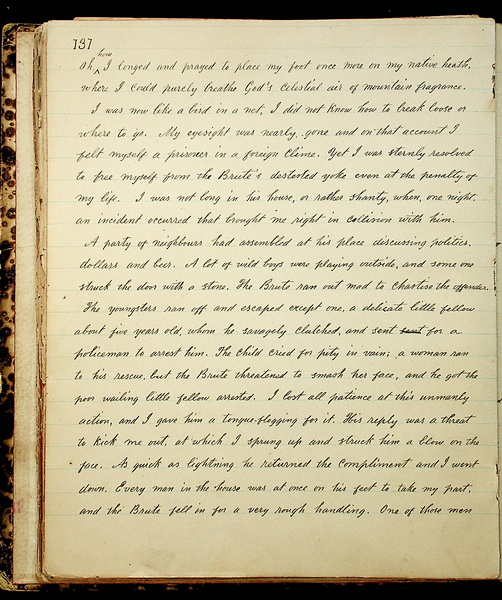 137
Oh, how I longed and prayed to place my foot once more on my native heath,
where I could purely breathe God's celestial air of mountain fragrance.
I was now like a bird in a net, I did not know how to break loose or
where to go. My eyesight was nearly gone and on that account I
felt myself a prisoner in a foreign clime. Yet I was sternly resolved
to free myself from the Brute's detested yoke even at the penalty of
my life. I was not long in his house, or rather shanty, when, one night,
an incident occurred that brought me right in collision with him.
A party of neighbours had assembled at his place discussing politics,
dollars and beer. A lot of wild boys were playing outside, and some one
struck the door with a stone. The Brute ran out mad to chastise the offender.
The youngsters ran off and escaped except one, a delicate little fellow
about five years old, whom he savagely clutched, and sent sent for a
policeman to arrest him. The child cried for pity in vain; a woman ran
to his rescue, but the Brute threatened to smash her face, and he got the
poor wailing little fellow arrested. I lost all patience at this unmanly
action, and I gave him a tongue-flogging for it. His reply was a threat
to kick me out, at which I sprung up and struck him a blow on the
face. As quick as lightning he returned the compliment and I went
down. Every man in the house was at once on his feet to take my part,
and the Brute fell in for a very rough handling. One of those men